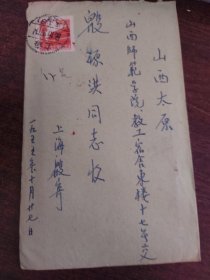 山西太原
山西師範学院教工宿舍東樓十七号交
殷穎洪同志收
上海殷寄
一九五五年十月廿七日